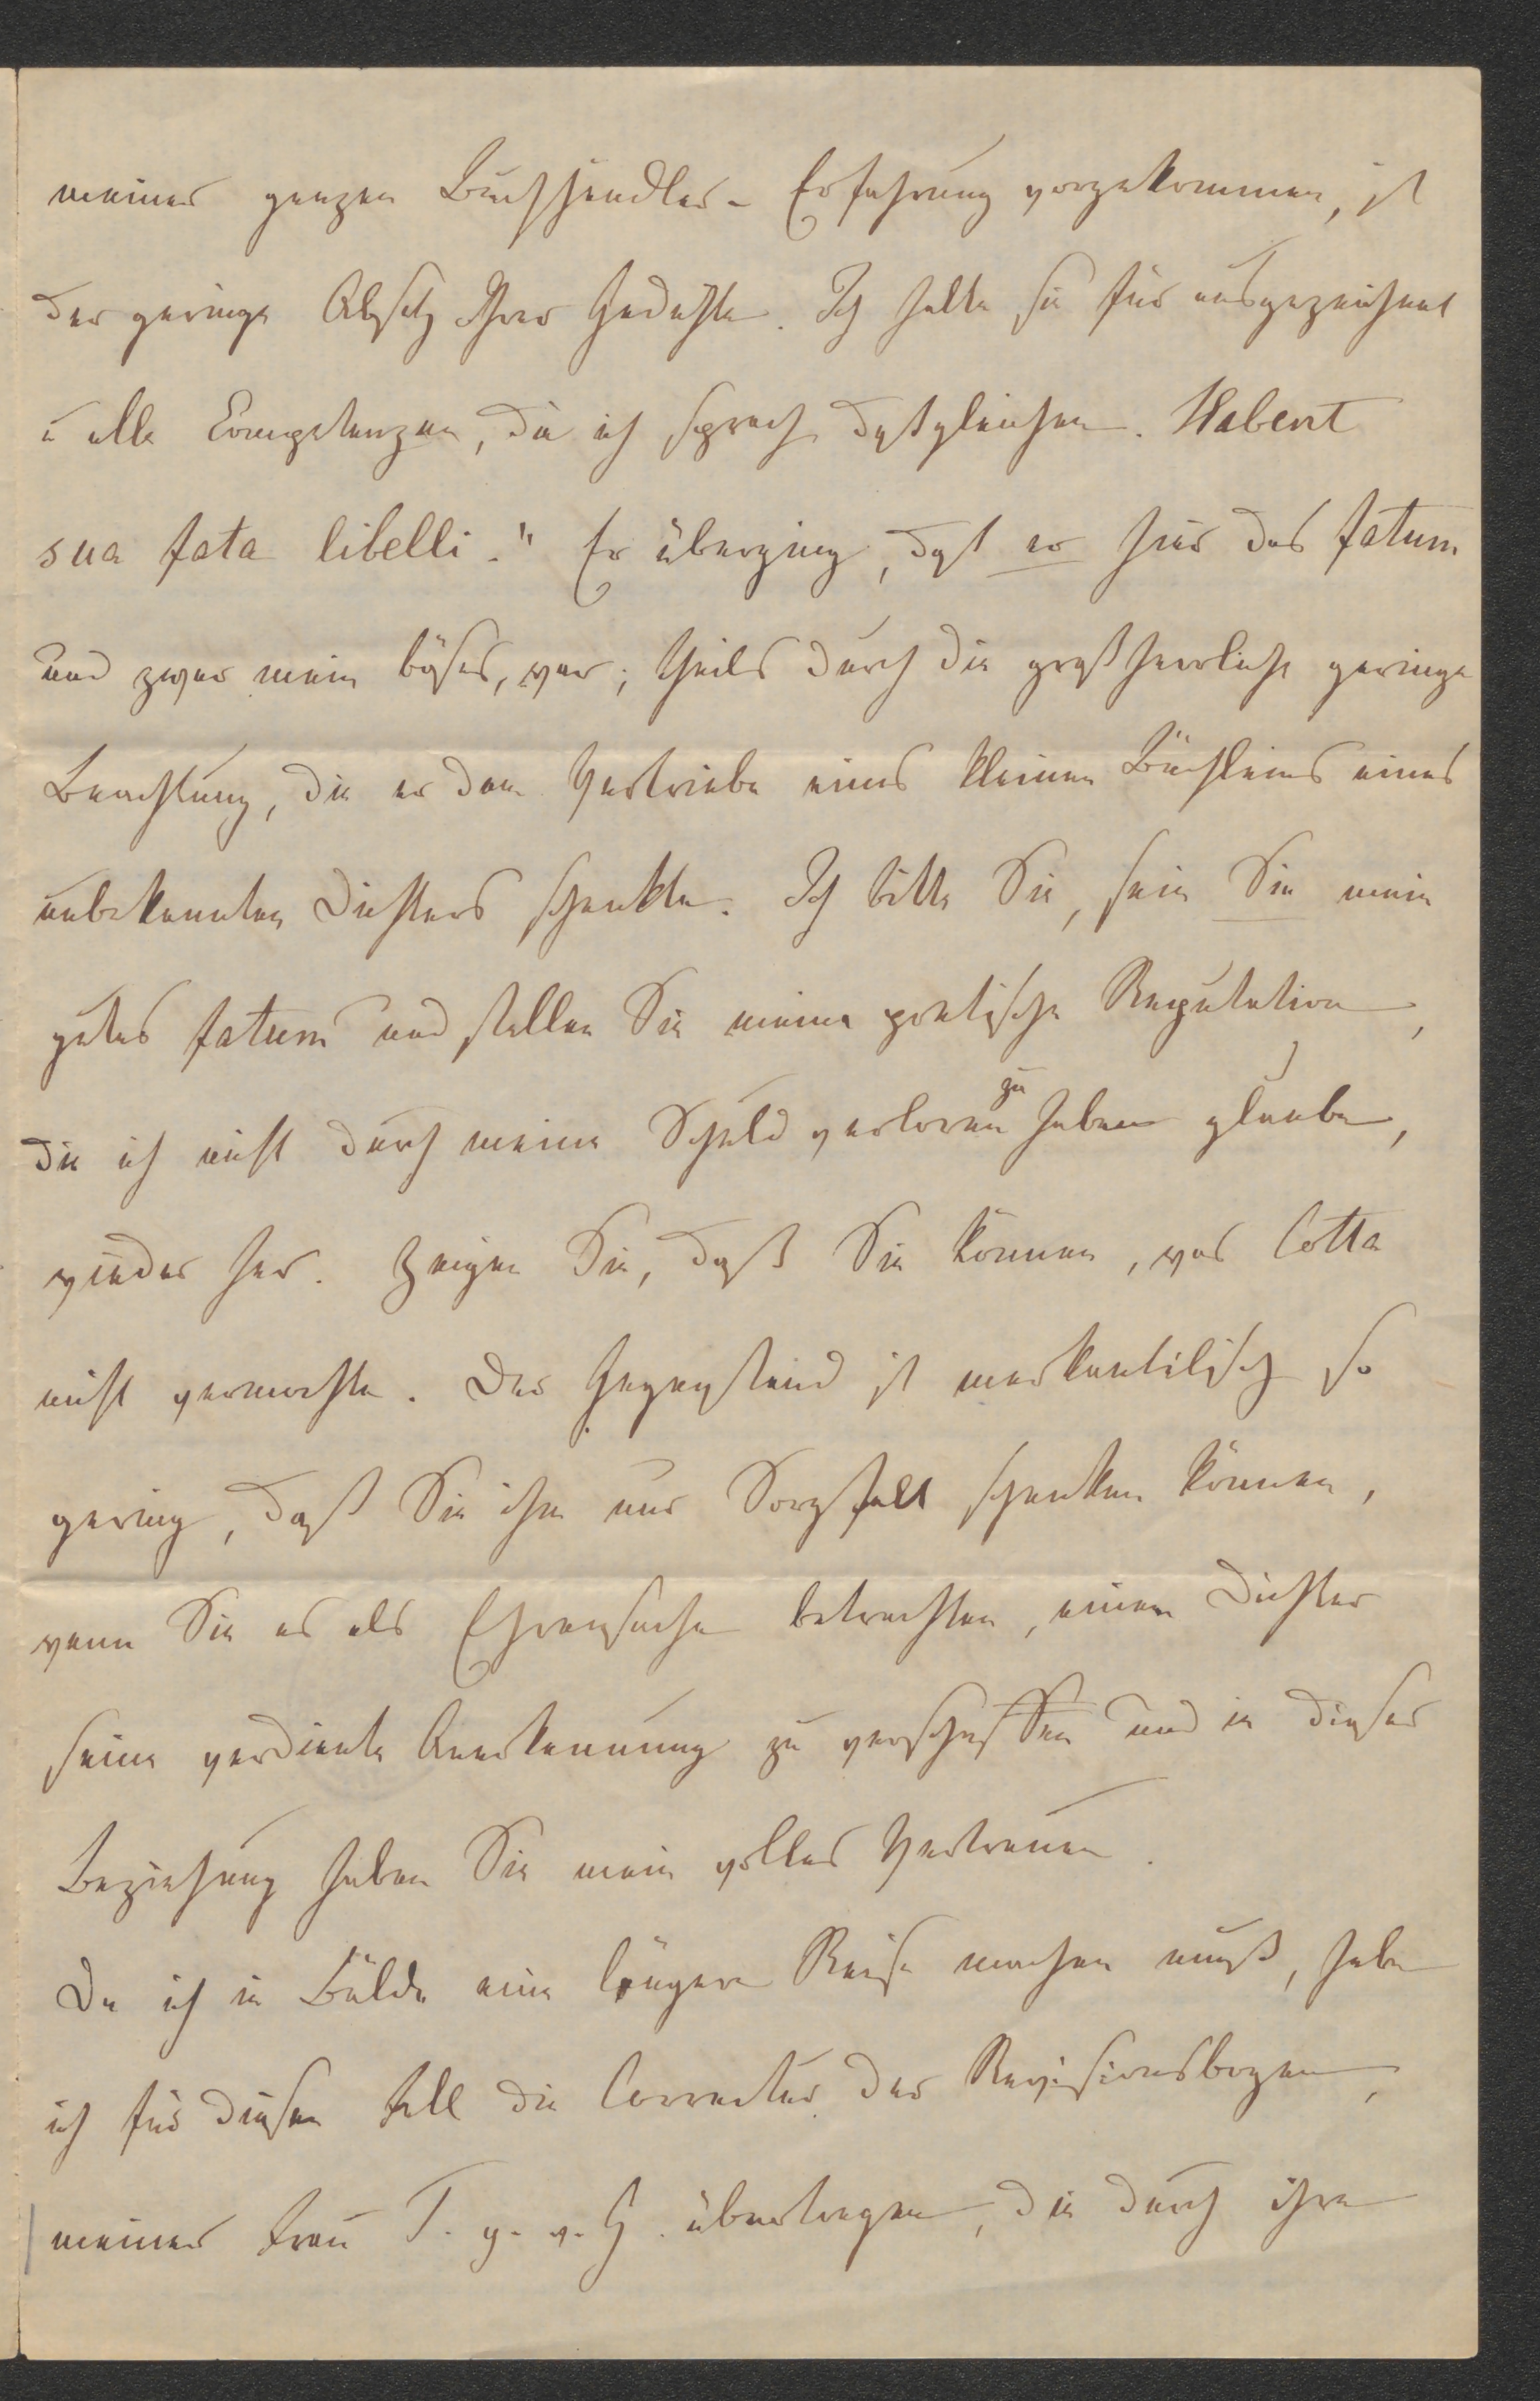 meiner ganzen Buchhändler-Erfahrung vorgekommen, ist
der geringe Absatz Ihrer Gedichte. Ich halte sie für ausgezeichnet
u alle Competenzen, die ich sprach desgleichen. Habent
sua fata libelli." Er überging, daß er hier das fatum
und zwar mein böses, war; theils durch die großherrliche geringe
Beachtung, die er dem Vertriebe eines kleinen Büchleins eines
unbekannten Dichters schenkte. Ich bitte Sie, sein Sie mein
gutes fatum und stellen Sie meine poetische Reputation,
die ich nicht durch meine Schuld verloren zu haben glaube,
wieder her. Zeigen Sie, daß Sie können, was Cotta
nicht vermochte. Der Gegenstand ist merkantilisch so
gering, daß Sie ihm nur Sorgfalt schenken können,
wenn Sie es als Ehrensache betrachten, einem Dichter
seine verdiente Anerkennung zu verschaffen und in dieser
Beziehung haben Sie mein volles Vertrauen.
Da ich in Bälde eine längere Reise machen muß, habe
ich für diesen Fall die Correctur der Revisionsbogen,
meiner Frau T. g. v. G. übertragen, die durch ihre